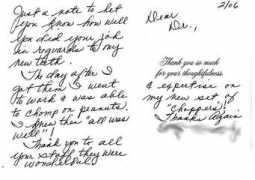 Just a note to let
you know how well
you did your job
in reguards to my
new teeth.
The day after I
got them I went
to work & was able
to chomp on peanuts.
I knew then "all was
well"!
Thank you to all
your staff they were
wonderful!
2/06
Dear
Dr.,
Thank you so much
for your thoughtfulness.
& expertise on
my new set of
"Choppers"!
Thanks Again